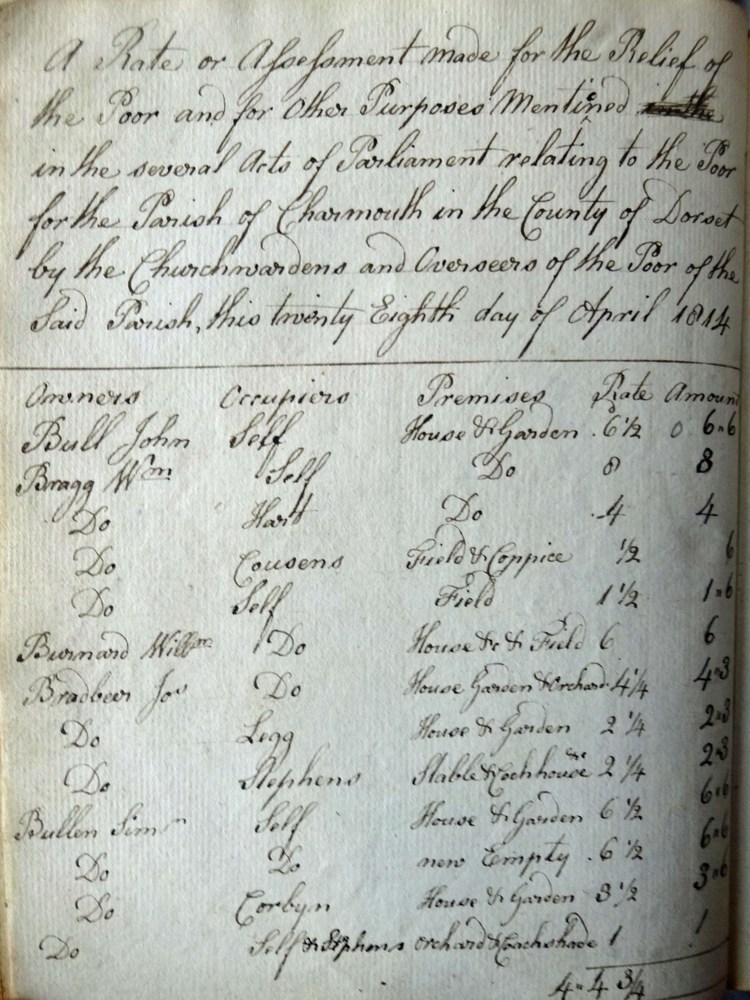 A Rate or Assessment made for the Relief of
the Poor and for Other Purposes Mentined in the
in the several Acts of Parliament relating to the Poor
for the Parish of Charmouth in the County of Dorset
by the Churchwardens and Overseers of the Poor of the
Said Parish, this twenty Eighth day of April 1814
Owners Occupiers Premises Rate Amount
Bull John Self House & Garden 6 1/2 0 6=6
Bragg Wm Self Do 8 8
Do Hart Do 4 4
Do Cousens Field & Coppice 1/2 6
Do Self Field 1 1/2 1=6
Burnard Willm Do House &c & Field 6 6
Bradbeer Jos Do House Garden & Orchard 4 1/4 4=3
Do Legg House & Garden 2 1/4 2=3
Do Stephens Stable & Cochhouse &c 2 1/4 2=3
Bullen Simn Self House & Garden 6 1/2 6=6
Do Do new Empty 6 1/2 6=6
Do Corbyn House & Garden 3 1/2 3=6
Do Self & Stephens Orchard & Coachshade 1 1
4=4 3/4